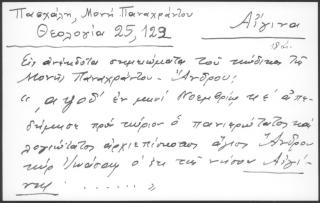 Πασχάλη, Μονή Παναχράντου
Θεολογία 25, 129
Αἴγινα
Εἰς ἀνέκδοτα σημειώματα τοῦ κώδικα τῆς
Μονῆς Παναχράντου - Ἄνδρου:
ἐν μηνὶ Νοεμβρίῳ κε ἀπε-
δήμησε πρὸς κύριον ὁ πανιερώτατος καὶ
λογιώτατος ἀρχιεπίσκοπος ἅγιος Ἄνδρου
κὺρ ὁ ἐκ τῆς νήσου Αἰγί-
νης ...... »